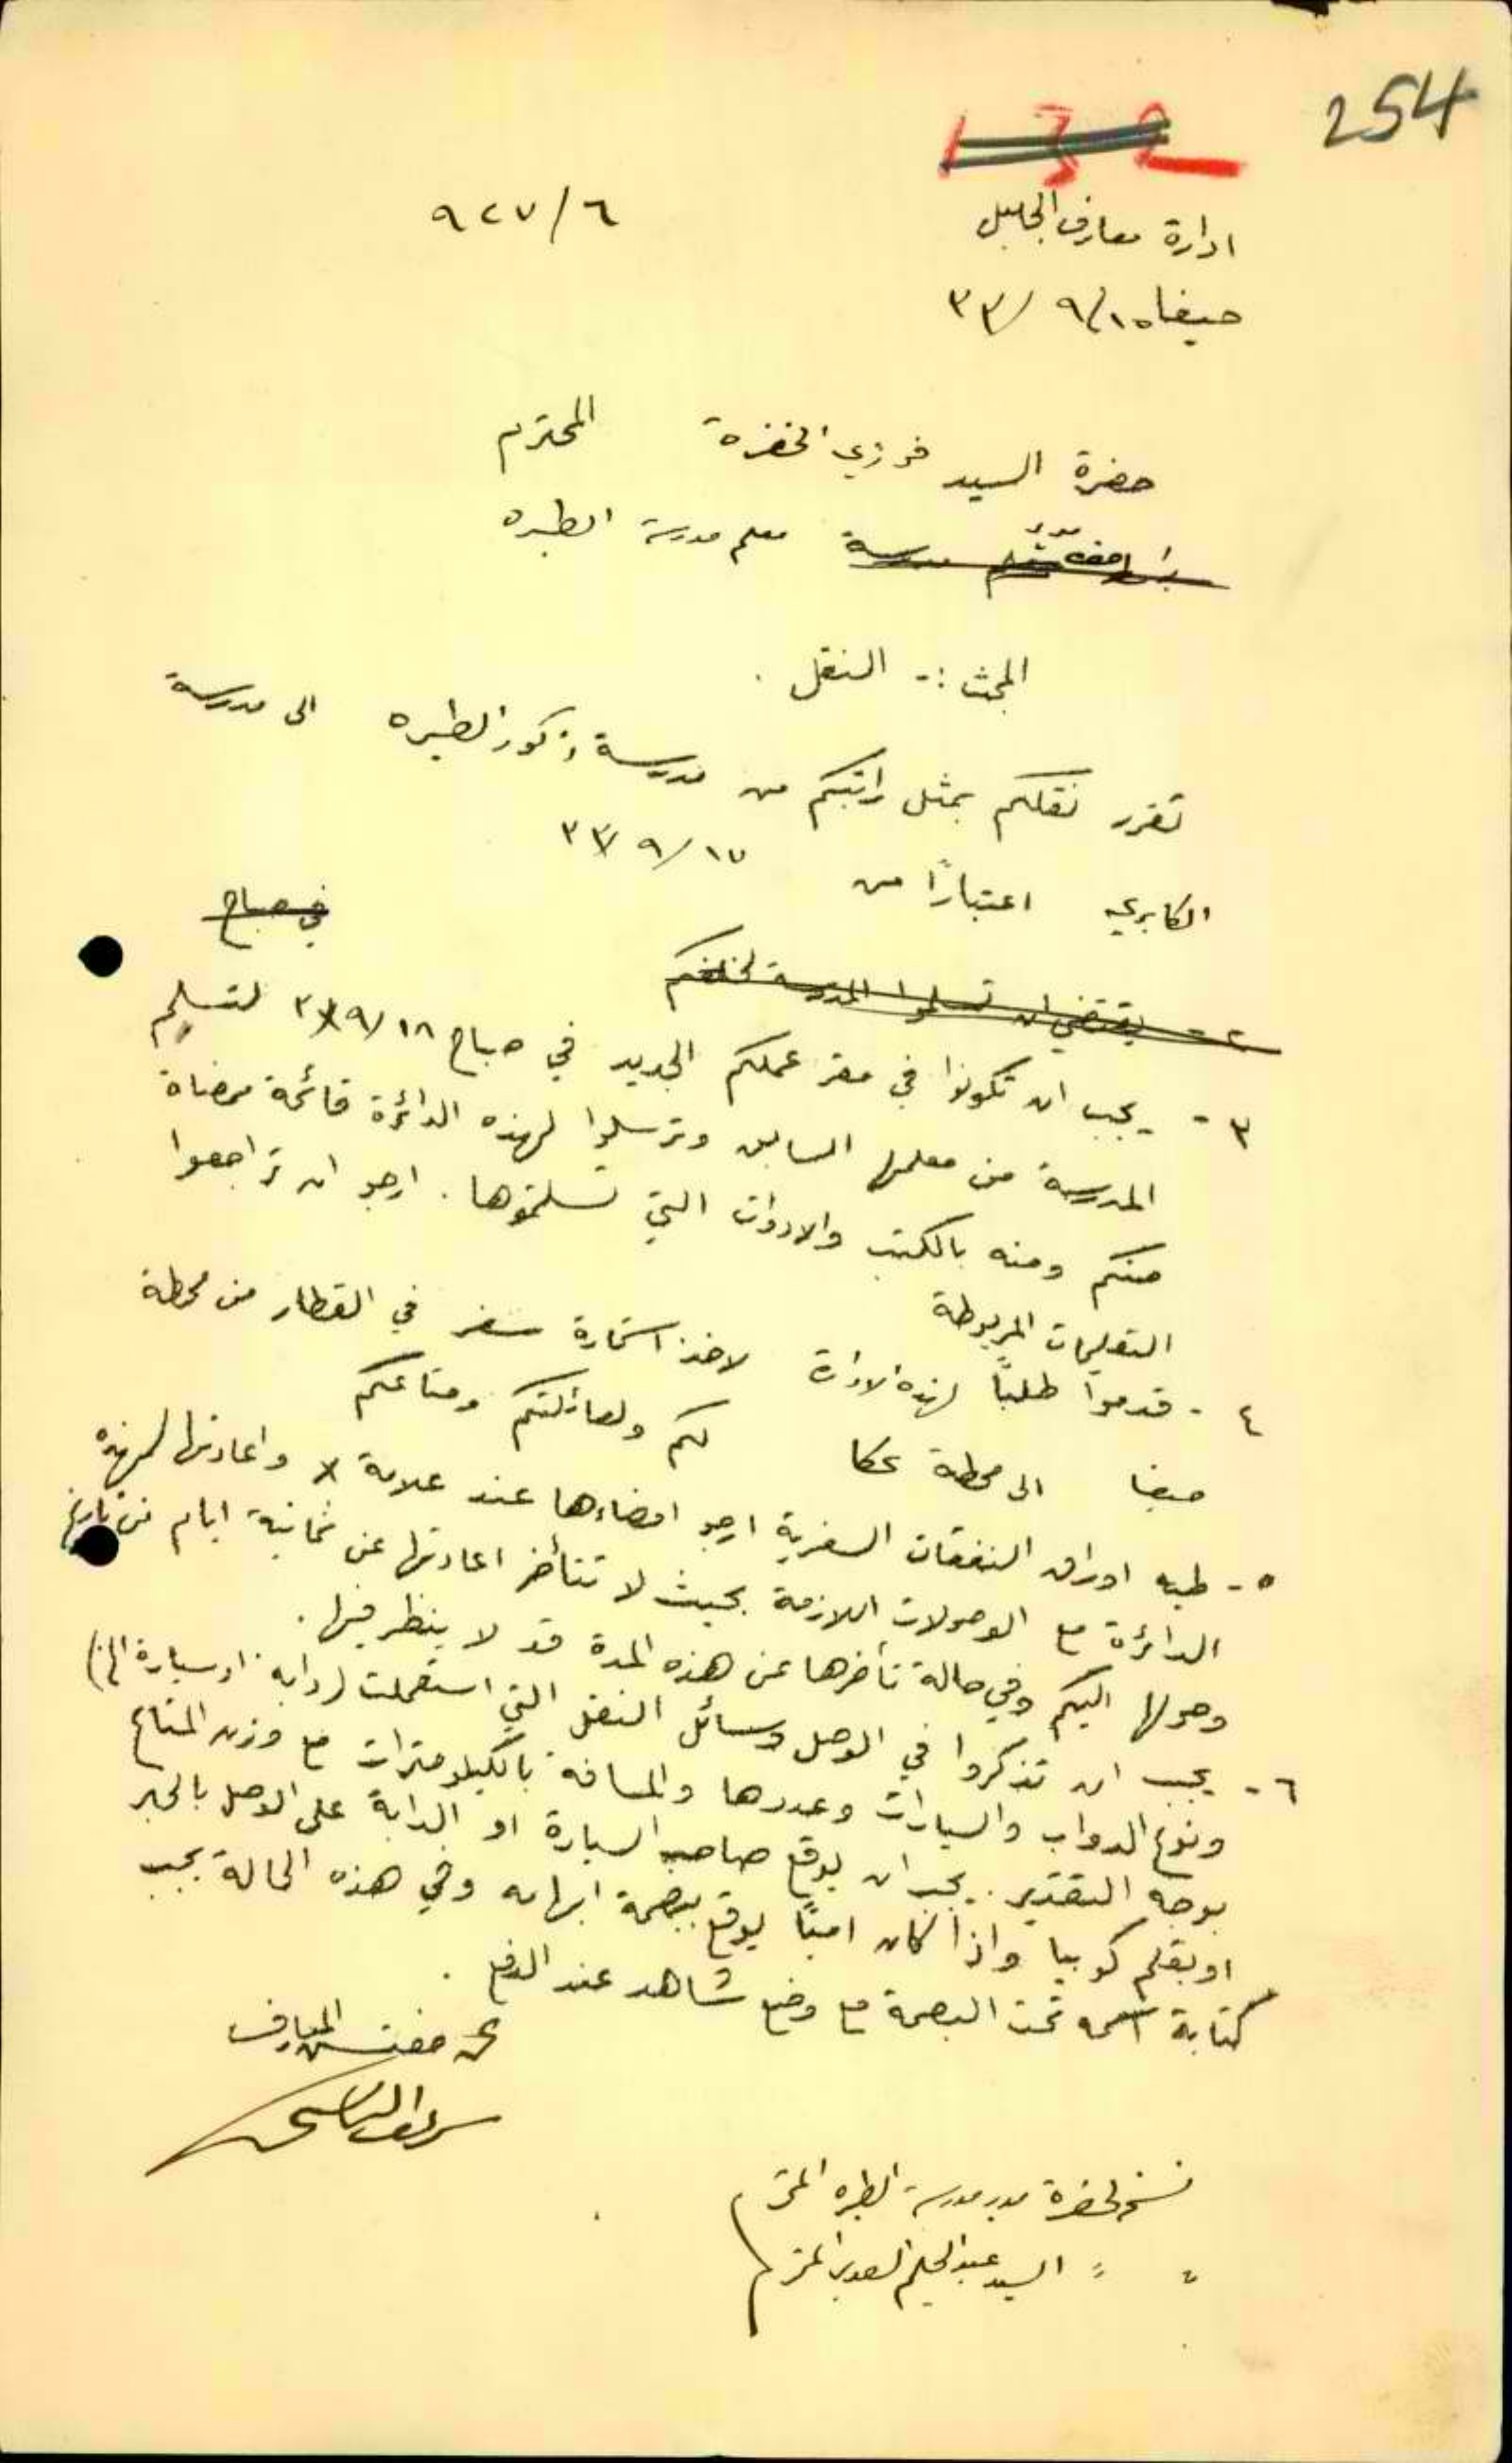 254
132
ادارة معارف الجليل
٦/٩٢٧
حيفا ١٥/٩/٣٣
حضرة السيد فوزي الخضره المحترم
مدرسة معلم مدرسة الطيره
المبحث :- النقل .
تقرر نقلكم بمثل راتبكم من مدرسة ذكور الطيره الى مدرسة
الكابري اعتبارًا من ١٧/٩/٣٣
في صباح
٢- يقتضي ان تسلموا المدرسة لخلفكم
٣- يجب ان تكونوا في مقر عملكم الجديد في صباح ١٨/٩/٣٣ لتسليم
المدرسة من معلمها السابق وترسلوا لهذه الدائرة قائمة ممضاة
منكم ومنه بالكتب والادوات التي تسلمتموها . ارجو ان تراجعوا
التعليمات المربوطة
٤- قدموا طلبًا لهذه الادارة لاخذ استمارة سفر في القطار من محطة
حيفا الى محطة عكا لكم ولعائلتكم ومتاعكم
٥- طيه اوراق النفقات السفرية ارجو امضاءها عند علامة x واعادتها لهذه
الدائرة مع الوصولات اللازمة بحيث لا تتأخر اعادتها عن ثمانية ايام من تاريخ
وصولها اليكم وفي حالة تأخرها عن هذه المدة قد لا ينظر فيها .
٦- يجب ان تذكروا في الوصل وسائل النقل التي استعملت (دابه او سيارة الخ)
ونوع الدواب والسيارات وعددها والمسافة بالكيلومترات مع وزن المتاع
بوجه التقدير . يجب ان يوقع صاحب السيارة او الدابة على الوصل بالحبر
او بقلم كوبيا واذا كان اميًا يوقع ببصمة ابهامه وفي هذه الحالة يجب
كتابة اسمه تحت البصمة مع وضع شاهد عند الدفع .
عن مفتش المعارف
نسخ لحضرة مدير مدرسة الطيره المحترم
" " السيد عبد الحليم المحترم